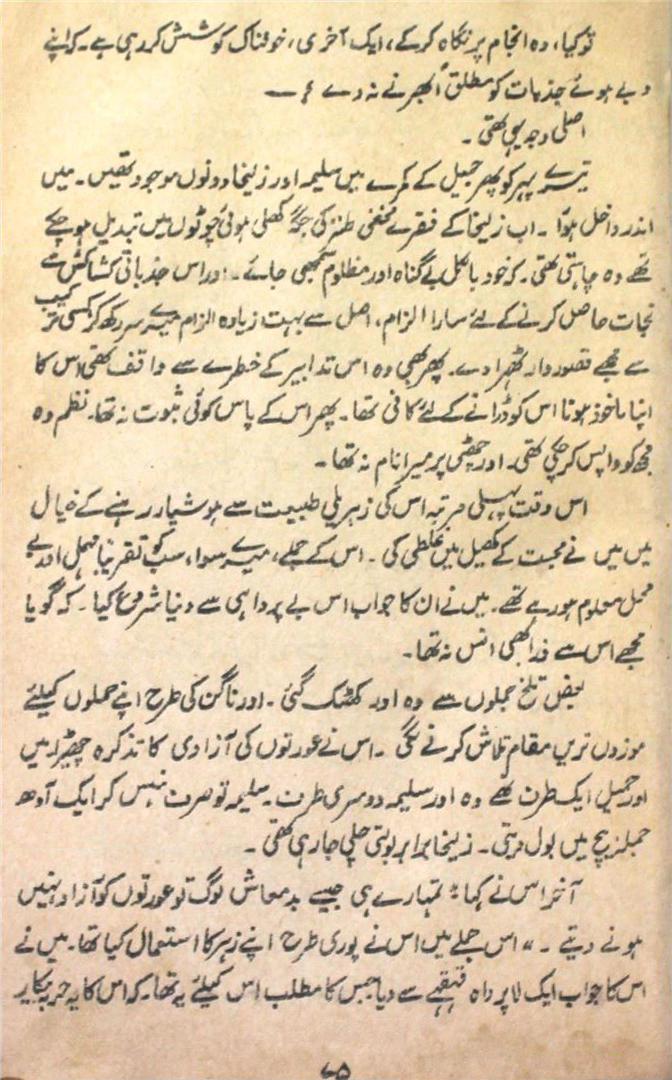 تو کیا، وہ انجام پر نگاہ کرکے، ایک آخری، خوفناک کوشش کر رہی ہے۔ کہ اپنے
دبے ہوئے جذبات کو مطلق اُبھرنے نہ دے ؟ —
اصلی وجہ یہی تھی۔
تیسرے پہر کو پھر جمیل کے کمرے میں سلیمہ اور زلیخا دونوں موجود تھیں۔ میں
اندر داخل ہوا۔ اب زلیخا کے فقرے مخفی طنز کی جگہ کھلی ہوئی چوٹوں میں تبدیل ہو چکے
تھے وہ چاہتی تھی۔ کہ خود بالکل بے گناہ اور مظلوم سمجھی جائے۔ اور اس جذباتی کشاکش سے
نجات حاصل کرنے کے لئے سارا الزام، اصل سے بہت زیادہ الزام میرے سر رکھ کر کسی ترکیب
سے مجھے قصوردار ٹھہرا دے۔ پھر بھی وہ اس تدابیر کے خطرے سے واقف تھی اس کا
اپنا ماخوذ ہونا اس کو ڈرانے کے لئے کافی تھا۔ پھر اس کے پاس کوئی ثبوت نہ تھا۔ نظم وہ
مجھ کو واپس کر چکی تھی۔ اور چٹھی پر میرا نام نہ تھا۔
اس وقت پہلی مرتبہ اس کی زہریلی طبیعت سے ہوشیار رہنے کے خیال
میں میں نے محبت کے کھیل میں غلطی کی۔ اس کے جملے، میرے سوا، سب کو تقریباً مہمل اور بے
محل معلوم ہو رہے تھے۔ میں نے ان کا جواب اس بے پرواہی سے دنیا شروع کیا۔ کہ گویا
مجھے اس سے ذرا بھی انس نہ تھا۔
بعض تلخ جملوں سے وہ اور کھٹک گئی۔ اور ناگن کی طرح اپنے حملوں کیلئے
موزوں ترین مقام تلاش کرنے لگی۔ اس نے عورتوں کی آزادی کا تذکرہ چھیڑا۔ میں
اور جمیل ایک طرف تھے وہ اور سلیمہ دوسری طرف۔ سلیمہ تو صرف ہنس کر ایک آدھ
جملہ بیچ میں بول دیتی۔ زلیخا برابر بولتی چلی جا رہی تھی۔
آخر اس نے کہا "تمہارے ہی جیسے بدمعاش لوگ تو عورتوں کو آزاد نہیں
ہونے دیتے۔" اس جملے میں اس نے پوری طرح اپنے زہر کا استعمال کیا تھا۔ میں نے
اس کا جواب ایک لاپرواہ قہقہے سے دیا جس کا مطلب اس کیلئے یہ تھا۔ کہ اس کا یہ حربہ بیکار
۷۵